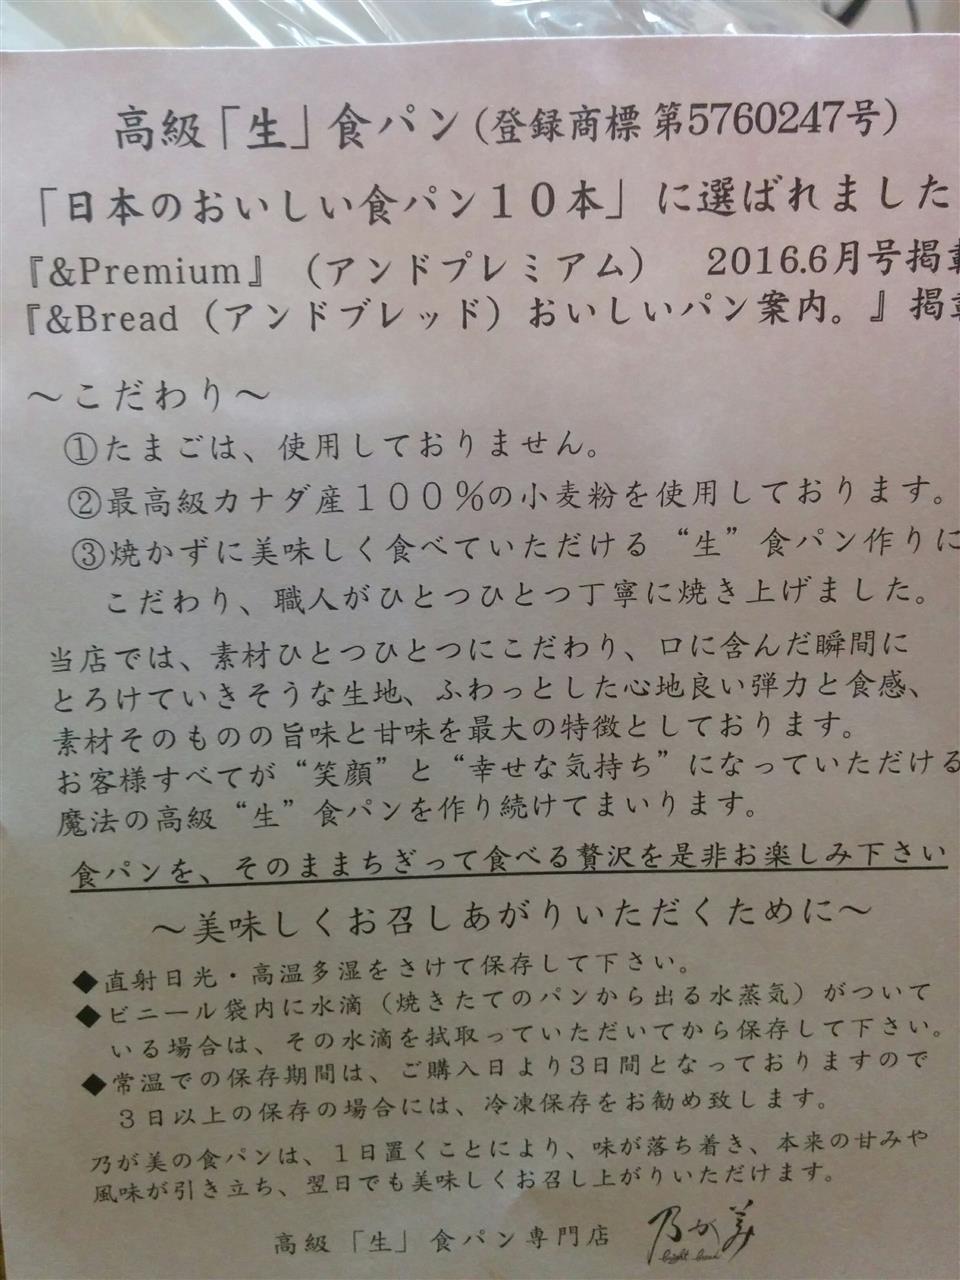 高級「生」食パン(登録商標 第5760247号)
「日本のおいしい食パン１０本」に選ばれました
『&Premium』（アンドプレミアム）　2016.6月号掲載
『&Bread（アンドブレッド）おいしいパン案内。』掲載
～こだわり～
①たまごは、使用しておりません。
②最高級カナダ産１００％の小麦粉を使用しております。
③焼かずに美味しく食べていただける “生” 食パン作りに
こだわり、職人がひとつひとつ丁寧に焼き上げました。
当店では、素材ひとつひとつにこだわり、口に含んだ瞬間に
とろけていきそうな生地、ふわっとした心地良い弾力と食感、
素材そのものの旨味と甘味を最大の特徴としております。
お客様すべてが “笑顔” と “幸せな気持ち” になっていただける
魔法の高級 “生” 食パンを作り続けてまいります。
食パンを、そのままちぎって食べる贅沢を是非お楽しみ下さい
～美味しくお召しあがりいただくために～
◆直射日光・高温多湿をさけて保存して下さい。
◆ビニール袋内に水滴（焼きたてのパンから出る水蒸気）がついて
いる場合は、その水滴を拭取っていただいてから保存して下さい。
◆常温での保存期間は、ご購入日より3日間となっておりますので
３日以上の保存の場合には、冷凍保存をお勧め致します。
乃が美の食パンは、１日置くことにより、味が落ち着き、本来の甘みや
風味が引き立ち、翌日でも美味しくお召し上がりいただけます。
高級「生」食パン専門店　乃が美